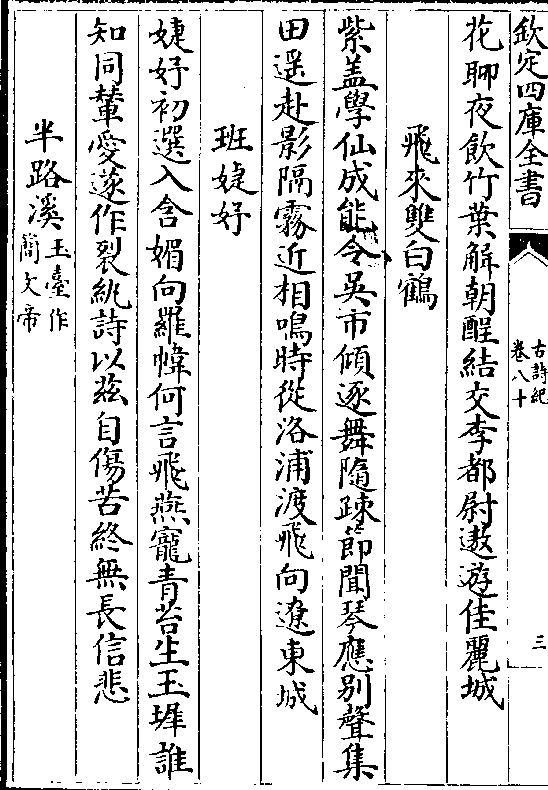 欽定四庫全書
古詩紀
卷八十
三
花聊夜飲竹葉解朝酲結交李都尉遨遊佳麗城
飛來雙白鶴
紫蓋學仙成能令吳市傾逐舞隨疎節聞琴應別聲集
田遥赴影隔霧近相鳴時從洛浦渡飛向遼東城
班婕妤
婕妤初選入含媚向羅幃何言飛燕寵青苔生玉墀誰
知同輦愛遂作裂紈詩以兹自傷苦終無長信悲
半路溪玉臺作
簡文帝